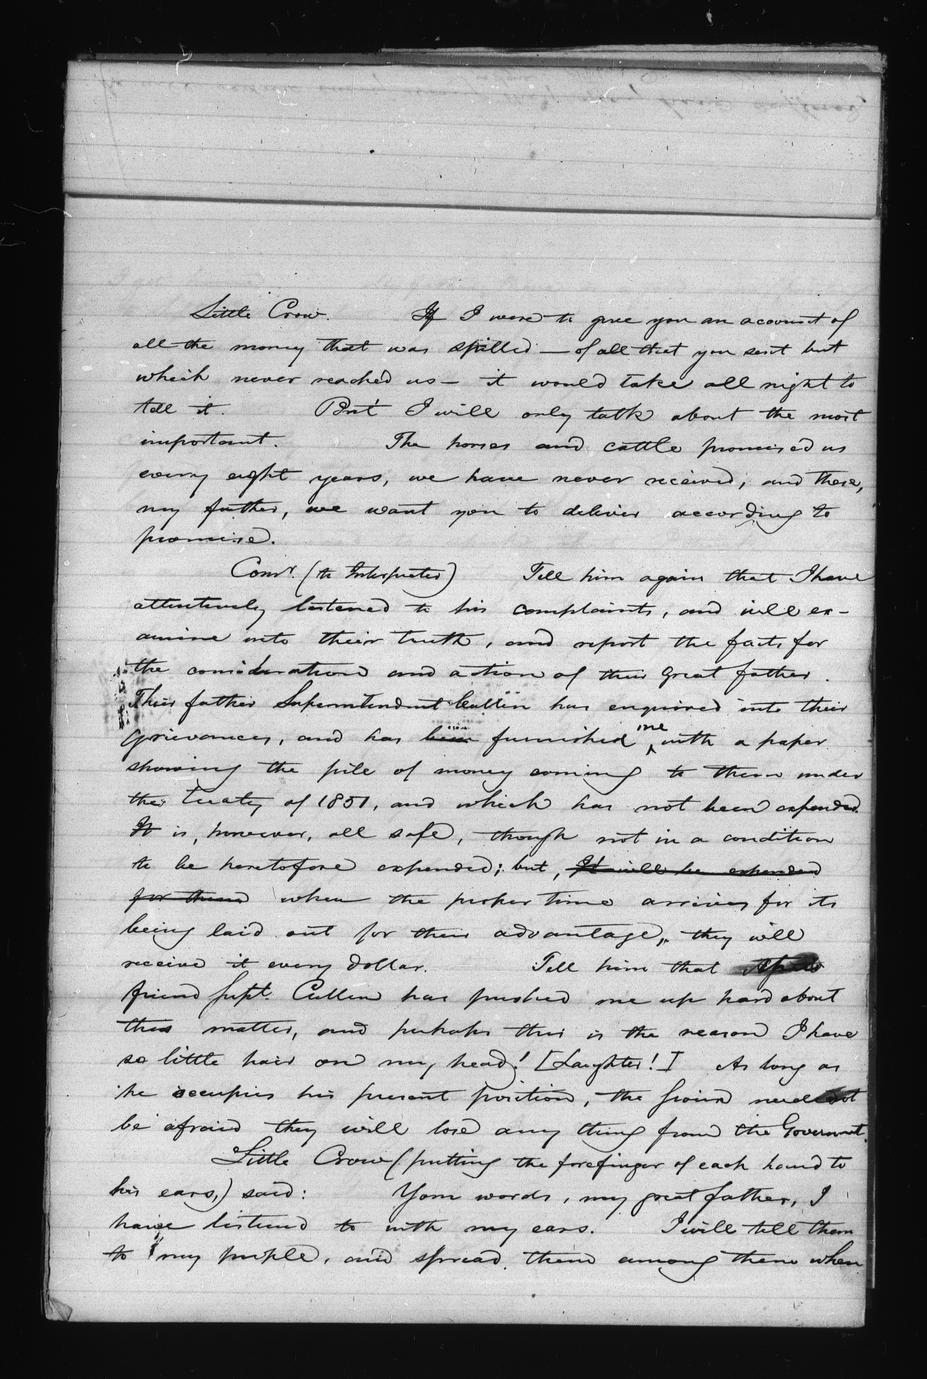 Little Crow. If I were to give you an account of
all the money that was spilled — of all that you sent but
which never reached us — it would take all night to
tell it. But I will only talk about the most
important. The horses and cattle promised us
every eight years, we have never received; and these,
my father, we want you to deliver according to
promise.
Comr. (to Interpreter) Tell him again that I have
attentively listened to his complaints, and will ex-
amine into their truth, and report the facts for
the consideration and action of their great father.
Their father Superintendent Cullen has enquired into their
grievances, and has been furnished me with a paper
showing the pile of money coming to them under
the treaty of 1851, and which has not been expended.
It is, however, all safe, though not in a condition
to be heretofore expended; but, It will be expended
for them when the proper time arrives for its
being laid out for their advantage, they will
receive it every dollar. Tell him that
friend Supt. Cullen has pushed me up hard about
this matter, and perhaps this is the reason I have
so little hair on my head! [Laughter!] As long as
he occupies his present position, the Sioux need not
be afraid they will lose any thing from the Government.
Little Crow (putting the forefinger of each hand to
his ears,) said: Your words, my great father, I
have listened to with my ears. I will tell them
to my people, and spread them among them when